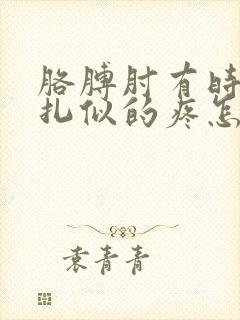 胳膊肘有时
扎似的疼怎
袁青青